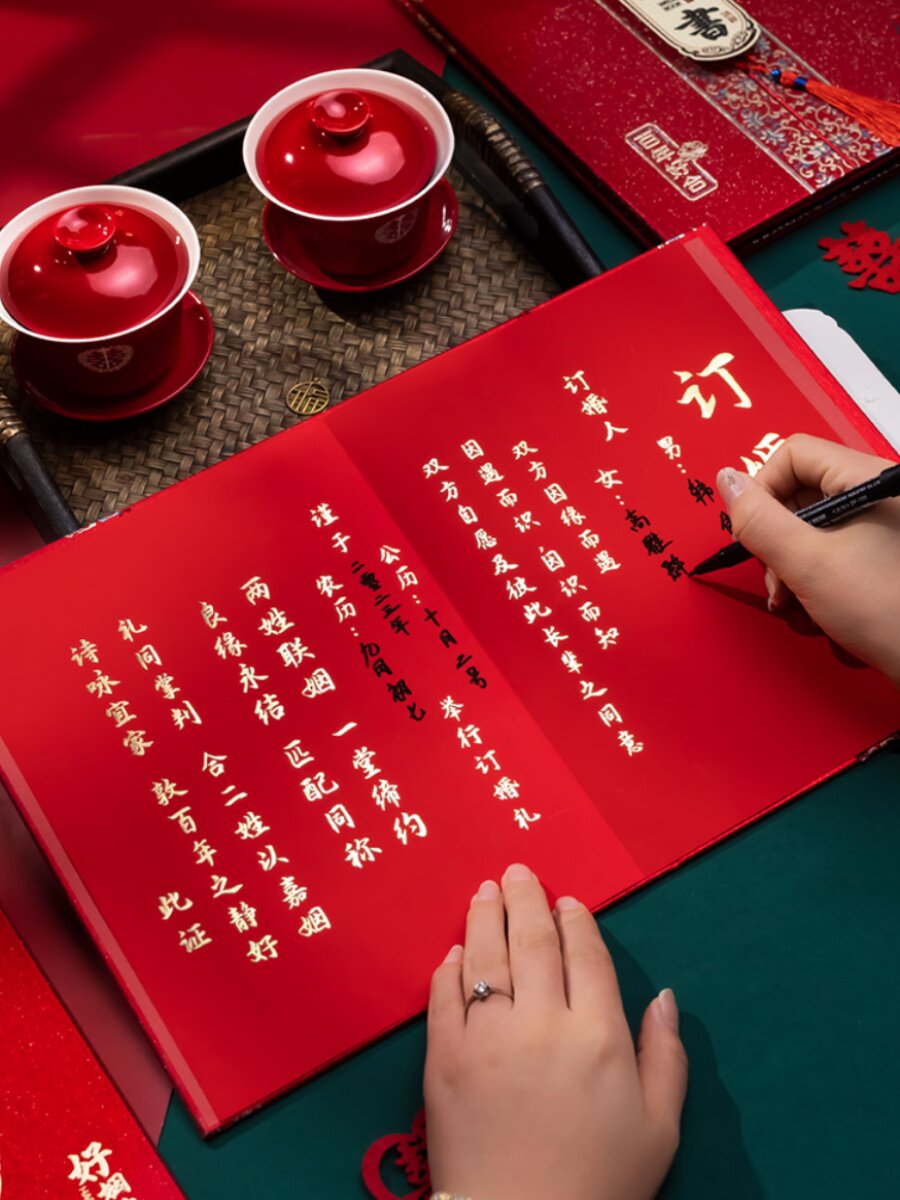 書
百年好合
福
订
男：韩
订婚人
女：高雅
双方因缘而遇
因遇而识 因识而知
双方自愿及彼此长辈之同意
公历：十月二号
谨于
农历：二零二二年九月初七
举行订婚礼
两姓联姻 一堂缔约
良缘永结 匹配同称
礼同掌判 合二姓以嘉姻
诗咏宜家 敦百年之静好
此证
好姻